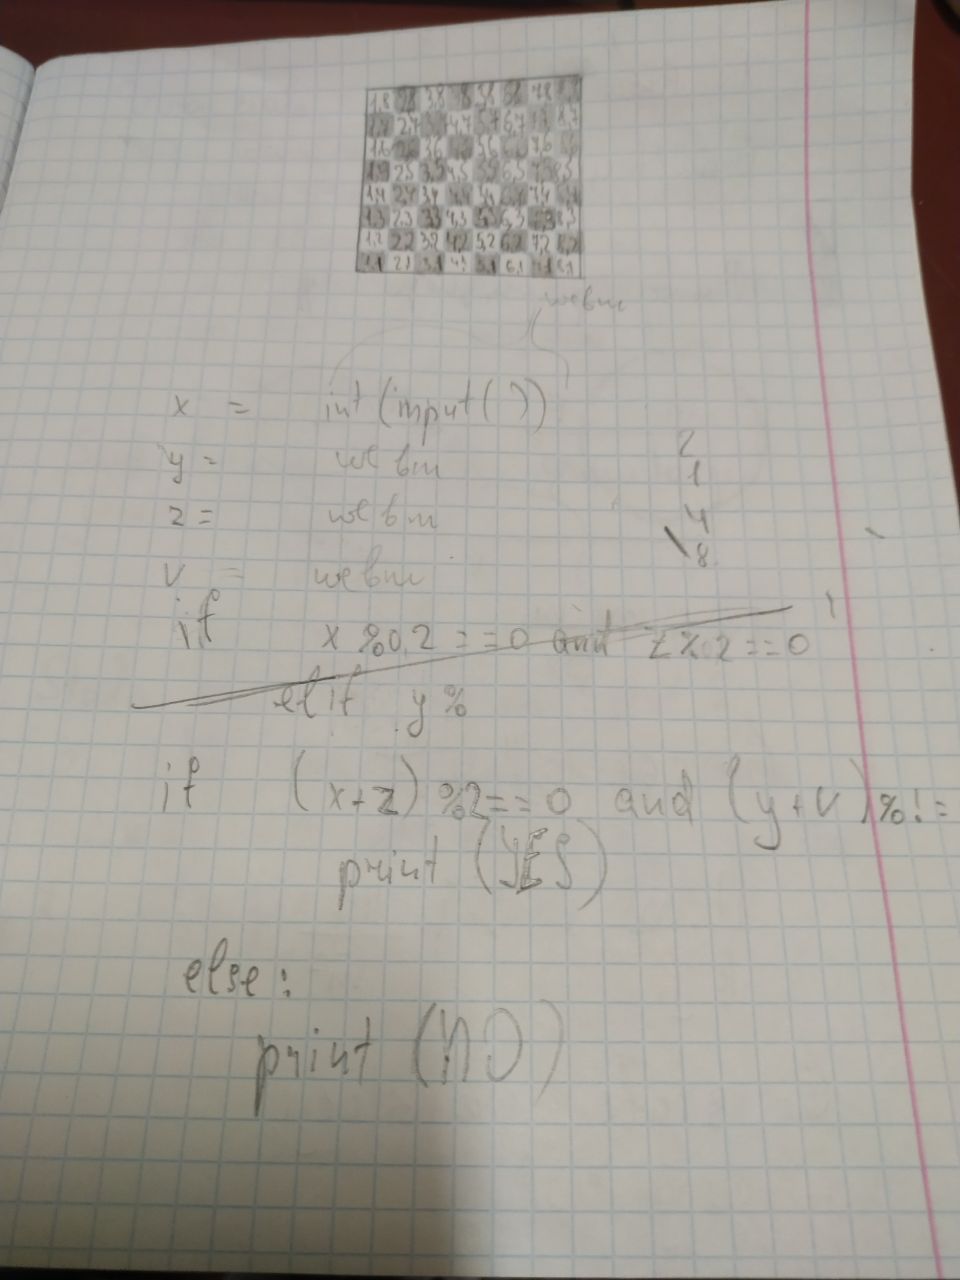 1,8 2,8 3,8 4,8 5,8 6,8 7,8 8,8
1,7 2,7 3,7 4,7 5,7 6,7 7,7 8,7
1,6 2,6 3,6 4,6 5,6 6,6 7,6 8,6
1,5 2,5 3,5 4,5 5,5 6,5 7,5 8,5
1,4 2,4 3,4 4,4 5,4 6,4 7,4 8,4
1,3 2,3 3,3 4,3 5,3 6,3 7,3 8,3
1,2 2,2 3,2 4,2 5,2 6,2 7,2 8,2
1,1 2,1 3,1 4,1 5,1 6,1 7,1 8,1
x = int(input())
y =
2
z =
1
v =
4
8
if x %0,2 == 0 and z % 2 == 0
elif y %
if (x+z) %2 == 0 and (y+v) %! =
print (YES)
else:
print (NO)